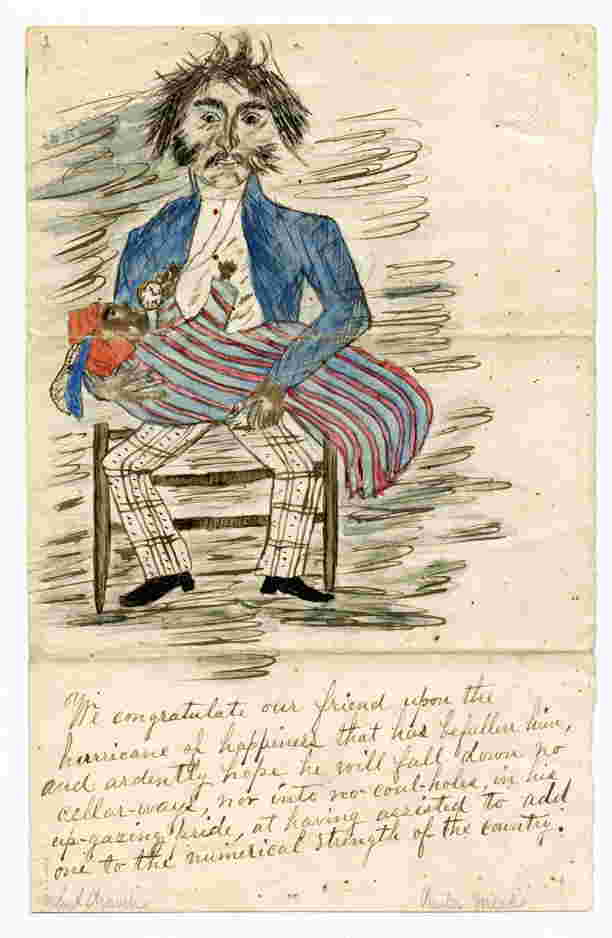 We congratulate our friend upon the
hurricane of happiness that has befallen him,
and ardently hope he will fall down no
cellar-ways, nor into no coal-holes, in his
up-gazing pride, at having assisted to add
one to the numerical strength of the country.